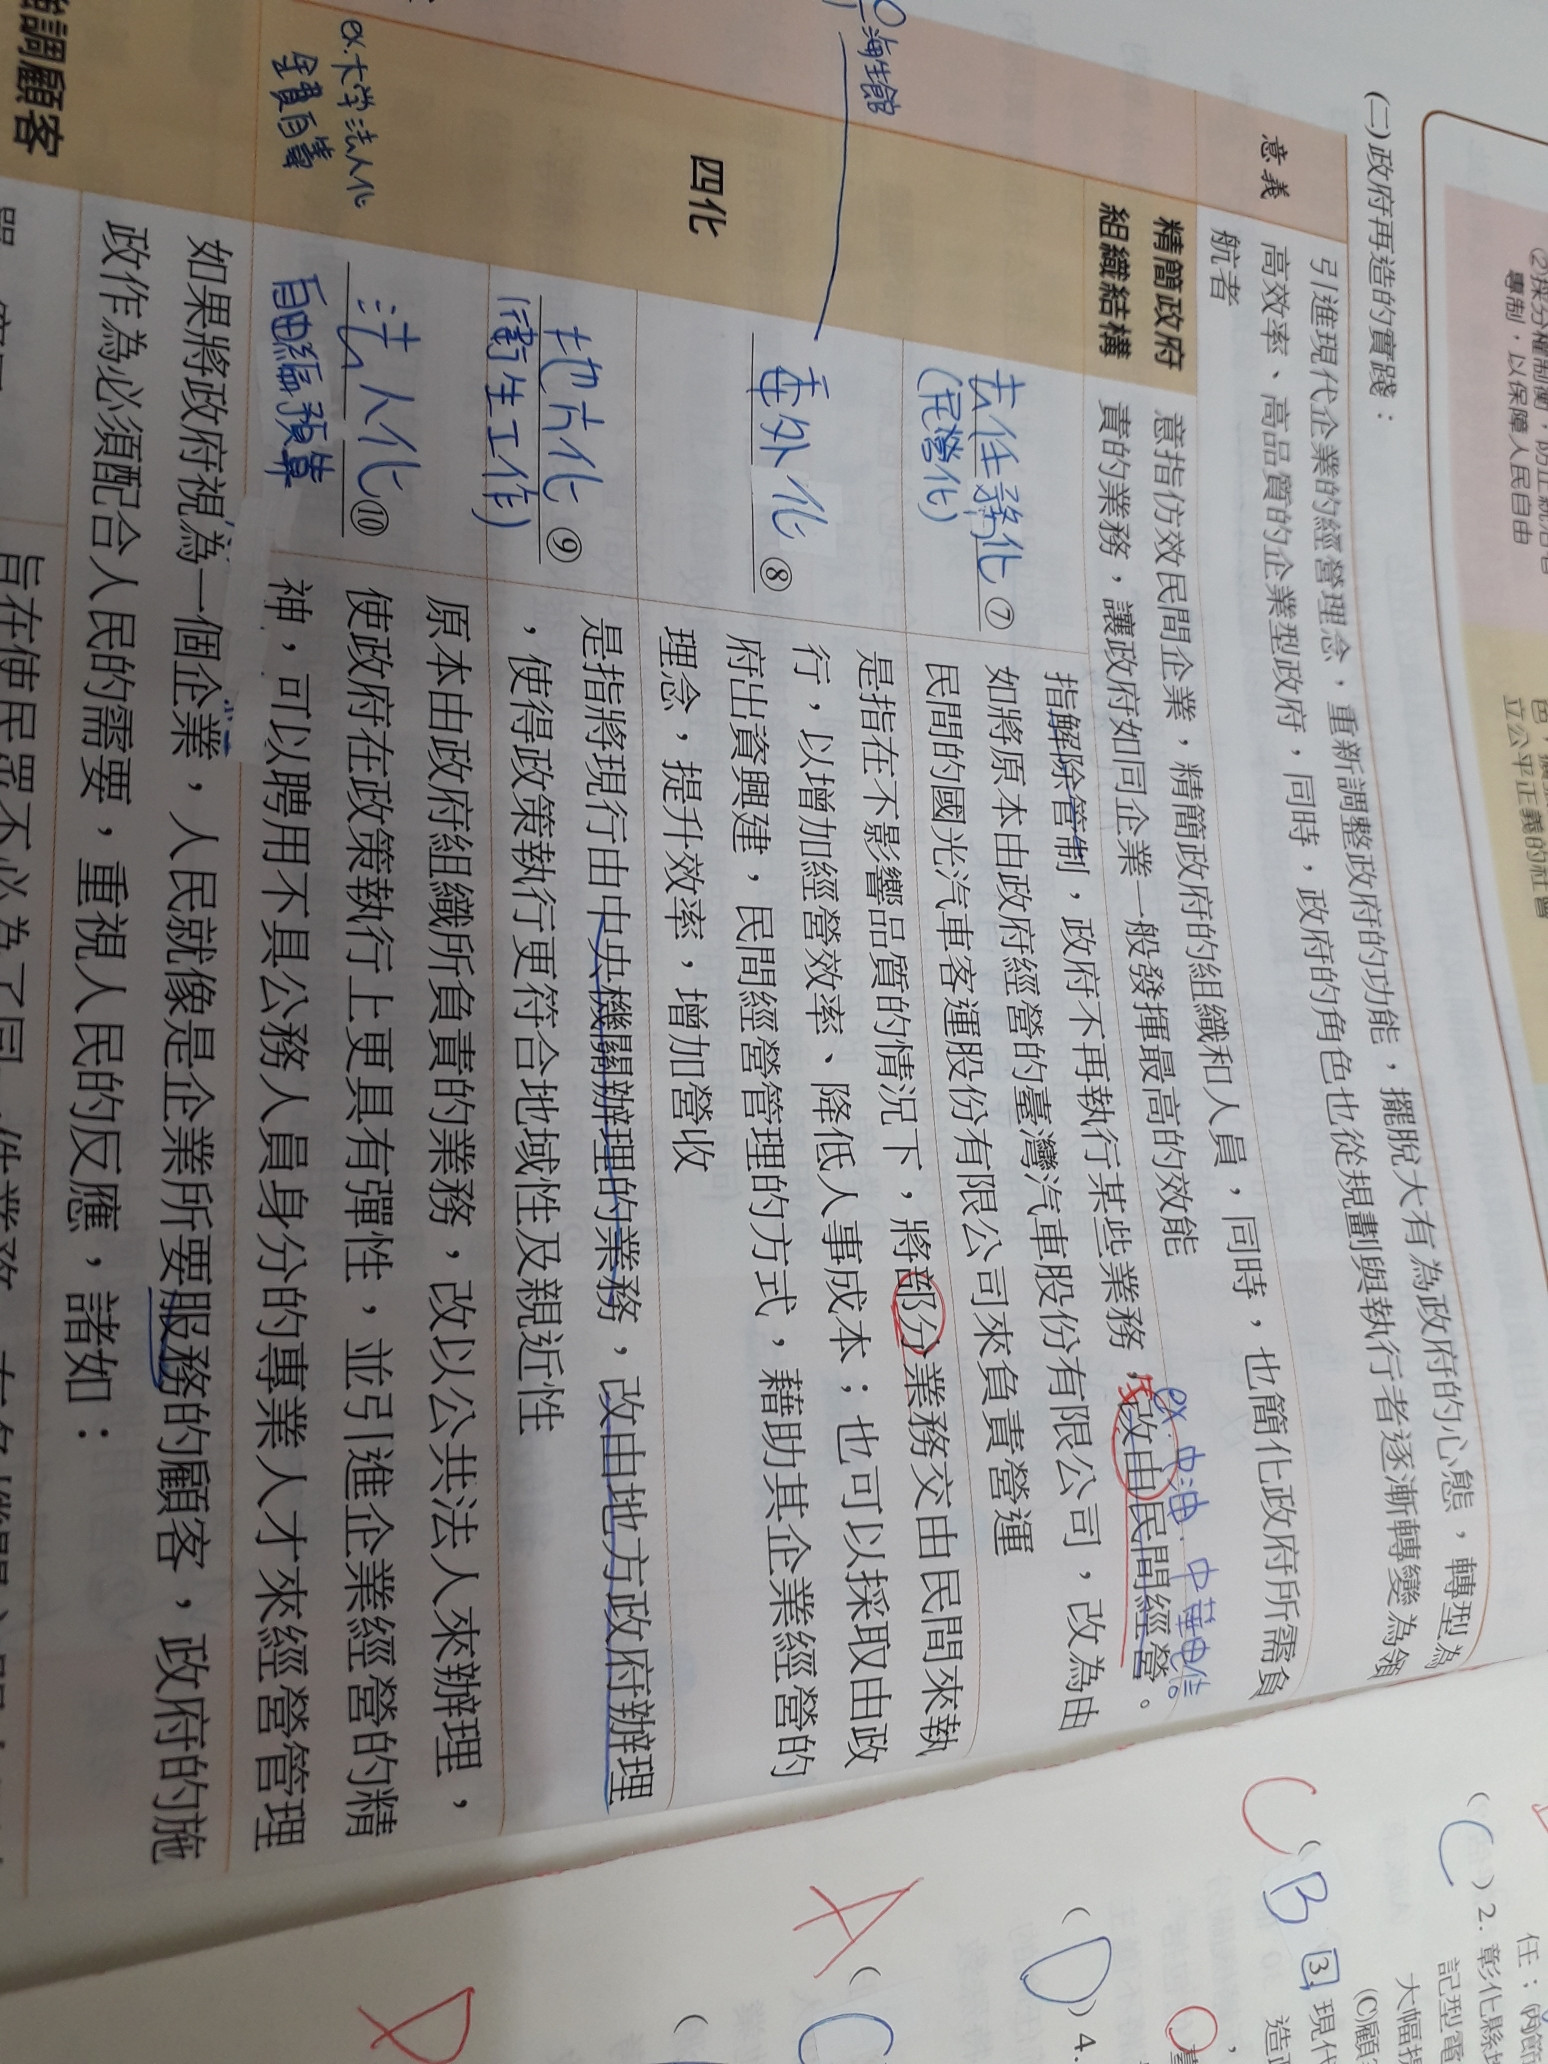 專制，以保障人民自由
立公平正義的社會
(二)政府再造的實踐：
意義
引進現代企業的經營理念，重新調整政府的功能，擺脫大有為政府的心態，轉型為
高效率、高品質的企業型政府，同時，政府的角色也從規劃與執行者逐漸轉變為領
航者
精簡政府
組織結構
意指仿效民間企業，精簡政府的組織和人員，同時，也簡化政府所需負
責的業務，讓政府如同企業一般發揮最高的效能
四化
去任務化⑦
(民營化)
ex.中油.中華電信
指解除管制，政府不再執行某些業務，或改由民間經營。
如將原本由政府經營的臺灣汽車股份有限公司，改為由
民間的國光汽車客運股份有限公司來負責營運
海生館
委外化⑧
是指在不影響品質的情況下，將部分業務交由民間來執
行，以增加經營效率、降低人事成本；也可以採取由政
府出資興建，民間經營管理的方式，藉助其企業經營的
理念，提升效率，增加營收
地方化⑨
(衛生工作)
是指將現行由中央機關辦理的業務，改由地方政府辦理
，使得政策執行更符合地域性及親近性
ex.大學法人化
法人化⑩
自由編預算
原本由政府組織所負責的業務，改以公共法人來辦理，
使政府在政策執行上更具有彈性，並引進企業經營的精
神，可以聘用不具公務人員身分的專業人才來經營管理
調顧客
如果將政府視為一個企業，人民就像是企業所要服務的顧客，政府的施
政作為必須配合人民的需要，重視人民的反應，諸如：
C
( C ) 2. 彰化縣
記型電
大幅提
C
( B 3. 現代
( D ) 4.
A